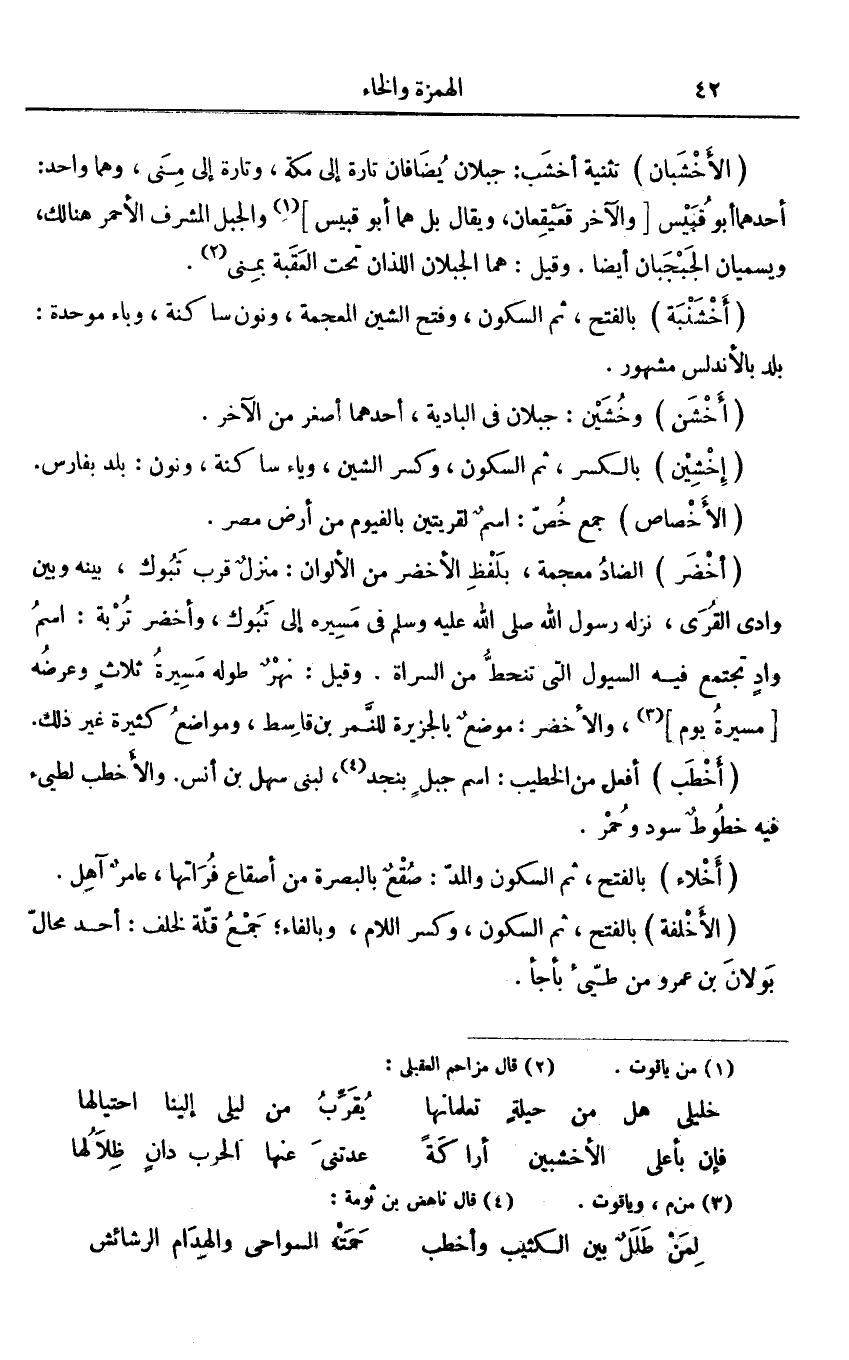 ٤٢ الهمزة والخاء
( الأَخْشَبان ) تثنية أخشَب: جبلان يُضَافان تارة إلى مكة ، وتارة إلى مِنَى ، وهما واحد:
أحدهما أبو قُبَيْس [ والآخر قعَيْقِعان، ويقال بل هما أبو قبيس ](١) والجبل المشرف الأحمر هنالك،
ويسميان الجَبْجَبان أيضا . وقيل : هما الجبلان اللذان تحت العَقَبة بمِنى(٢) .
( أَخْشَنْبَة ) بالفتح ، ثم السكون ، وفتح الشين المعجمة ، ونون ساكنة ، وباء موحدة :
بلد بالأندلس مشهور .
( أَخْشَن ) وخُشَيْن : جبلان فى البادية ، أحدهما أصغر من الآخر .
( إِخْشِيْن ) بالكسر ، ثم السكون ، وكسر الشين ، وياء ساكنة ، ونون : بلد بفارس.
( الأَخْصاص ) جمع خُصّ : اسمٌ لقريتين بالفيوم من أرض مصر .
( أخْضَر ) الضادُ معجمة ، بلَفْظِ الأخضر من الألوان : منزلٌ قرب تَبُوك ، بينه وبين
وادى القُرَى ، نزله رسول الله صلى الله عليه وسلم فى مَسِيره إلى تَبُوك ، وأخضر تُرْبة : اسمُ
وادٍ تجتمع فيه السيول التى تنحطُّ من السراة . وقيل : نهْرٌ طوله مَسِيرةُ ثلاثٍ وعرضُه
[ مسيرةُ يوم ](٣) ، والأخضر : موضعٌ بالجزيرة للنَّمر بن قاسط ، ومواضعُ كثيرة غير ذلك.
( أَخْطَب ) أفعل من الخطيب : اسم جبلٍ بنجد(٤)، لبنى سهل بن أنس. والأخطب لطيىء
فيه خطُوطٌ سود وحُمْرٌ .
( أَخْلاء ) بالفتح، ثم السكون والمدّ : صُقْعٌ بالبصرة من أصقاع فُرَاتها ، عامرٌ آهِل .
( الأَخْلفة ) بالفتح، ثم السكون ، وكسر اللام ، وبالفاء؛ جَمْعُ قلّة لخلف : أحد محالّ
بَولانَ بن عمرو من طيّيءٔ بأجأ .
(١) من ياقوت . (٢) قال مزاحم العقيلى :
خليلى هل من حيلةٍ تعلمانها يُقَرِّبُ من ليلى إلينا احتيالها
فإن بأعلى الأخشبين أراكَةً عدتنىَ عنها الحرب دانٍ ظِلاَلُها
(٣) من م ، وياقوت . (٤) قال ناهض بن ثومة :
لِمَنْ طَلَلٌ بين الكثيب وأخطب حَمَتْه السواحى والهِدَام الرشائش